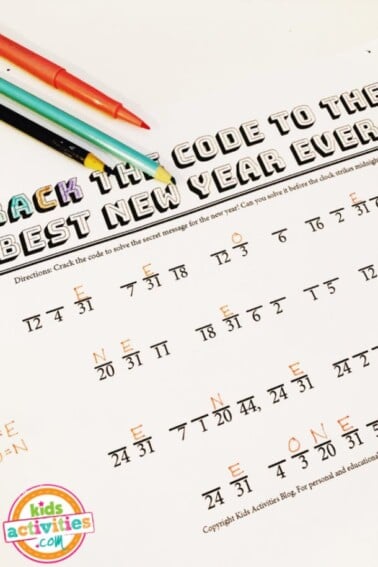 RACK THE CODE TO THE
BEST NEW YEAR EVER
Directions: Crack the code to solve the secret message for the new year! Can you solve it before the clock strikes midnight
E E O E
12 4 31 7 31 18 12 3 6 16 2 31
N E E
20 31 11 18 31 6 2 1 5 12
E N E
24 31 7 1 20 44, 24 31 24 2
E O N E
24 31 4 3 20 31
=E
=N
Copyright Kids Activities Blog. For personal and educational
kids
activities
.com